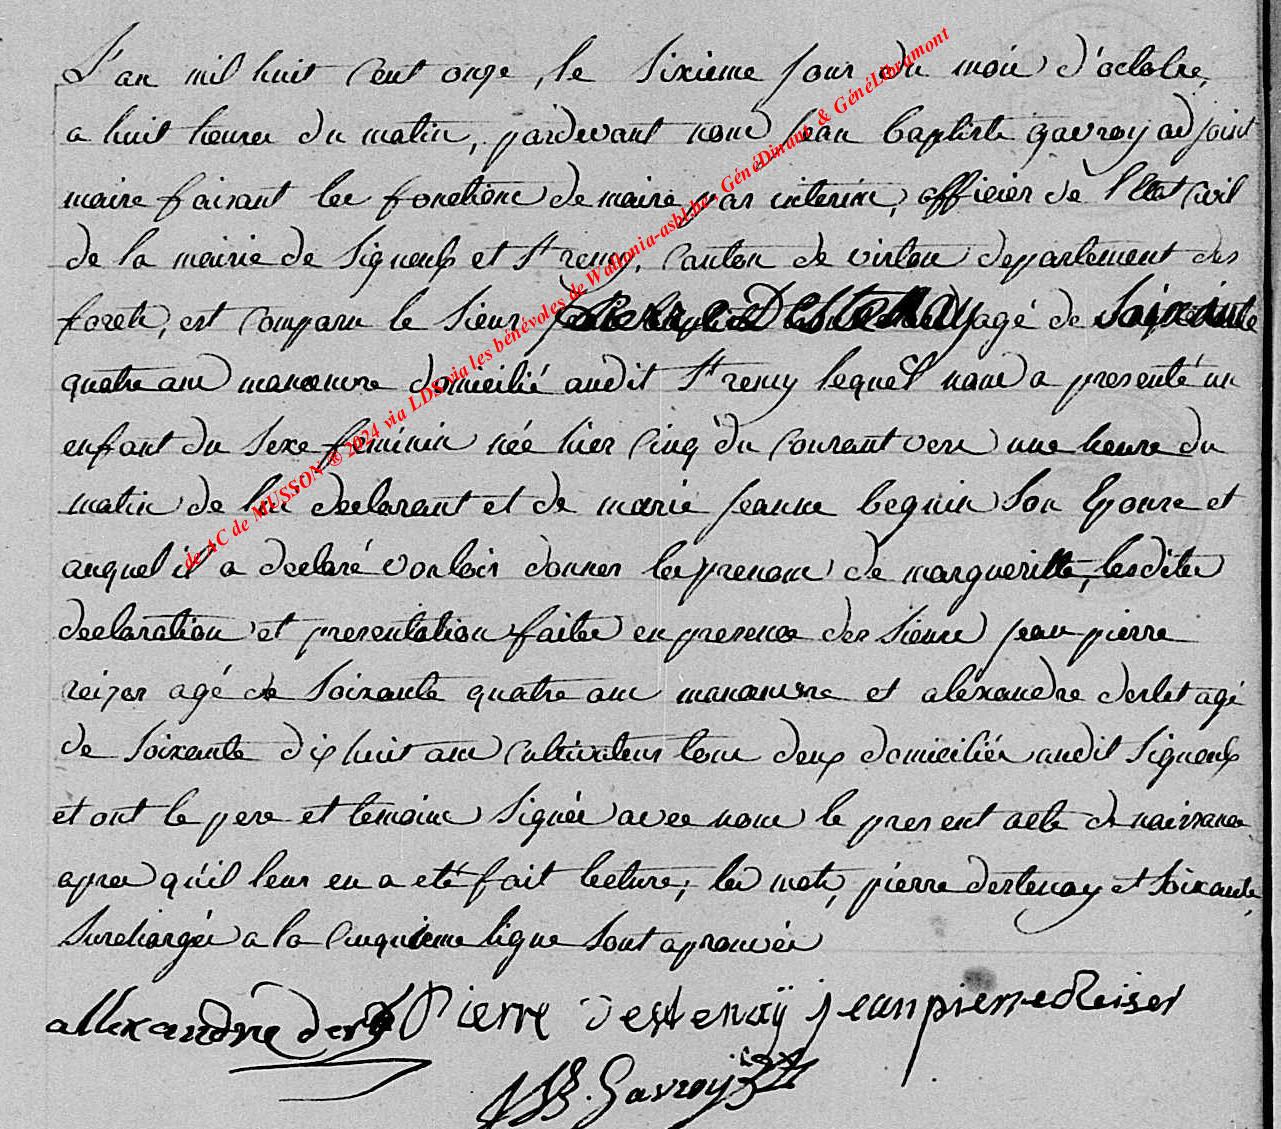 L'an mil huit Cent onze, le Sixieme jour du mois d'octobre,
a huit heures du matin, pardevant nous jean baptiste gavroy adjoint
maire faisant les fonctions de maire par interim, officier de l'Etat Civil
de la mairie de Signeulx et St remy, Canton de virton departement des
forets, est Comparu le Sieur pierre Destenay agé de Soixante
quatre ans manoeuvre domicilié audit St remy lequel nous a presenté un
enfant du Sexe feminin née hier Cinq du Courant vers une heure du
matin de lui declarant et de marie jeanne beguin Son Epouse et
auquel il a declaré vouloir donner les prenoms de margueritte, lesdites
declaration et presentation faites en presence des Sieurs jean pierre
reizer agé de Soixante quatre ans manoeuvre et aléxandre derlet agé
de Soixante dix huit ans Cultivateur tous deux domiciliés audit Signeulx
et ont le pere et temoins Signés avec nous le present acte de naissance
apres qu'il leur en a eté fait lecture, les mots, pierre destenay et Soixante,
Surchargés a la Cinquieme ligne Sont aprouvés
allexandre Pierre destenaÿ jean pierre Reiser
JB. Gavroy
de AC de MUSSON ® 2024 via LDS via les bénévoles de Wallonia-asbl.be - GénéDinant & GénéLibramont